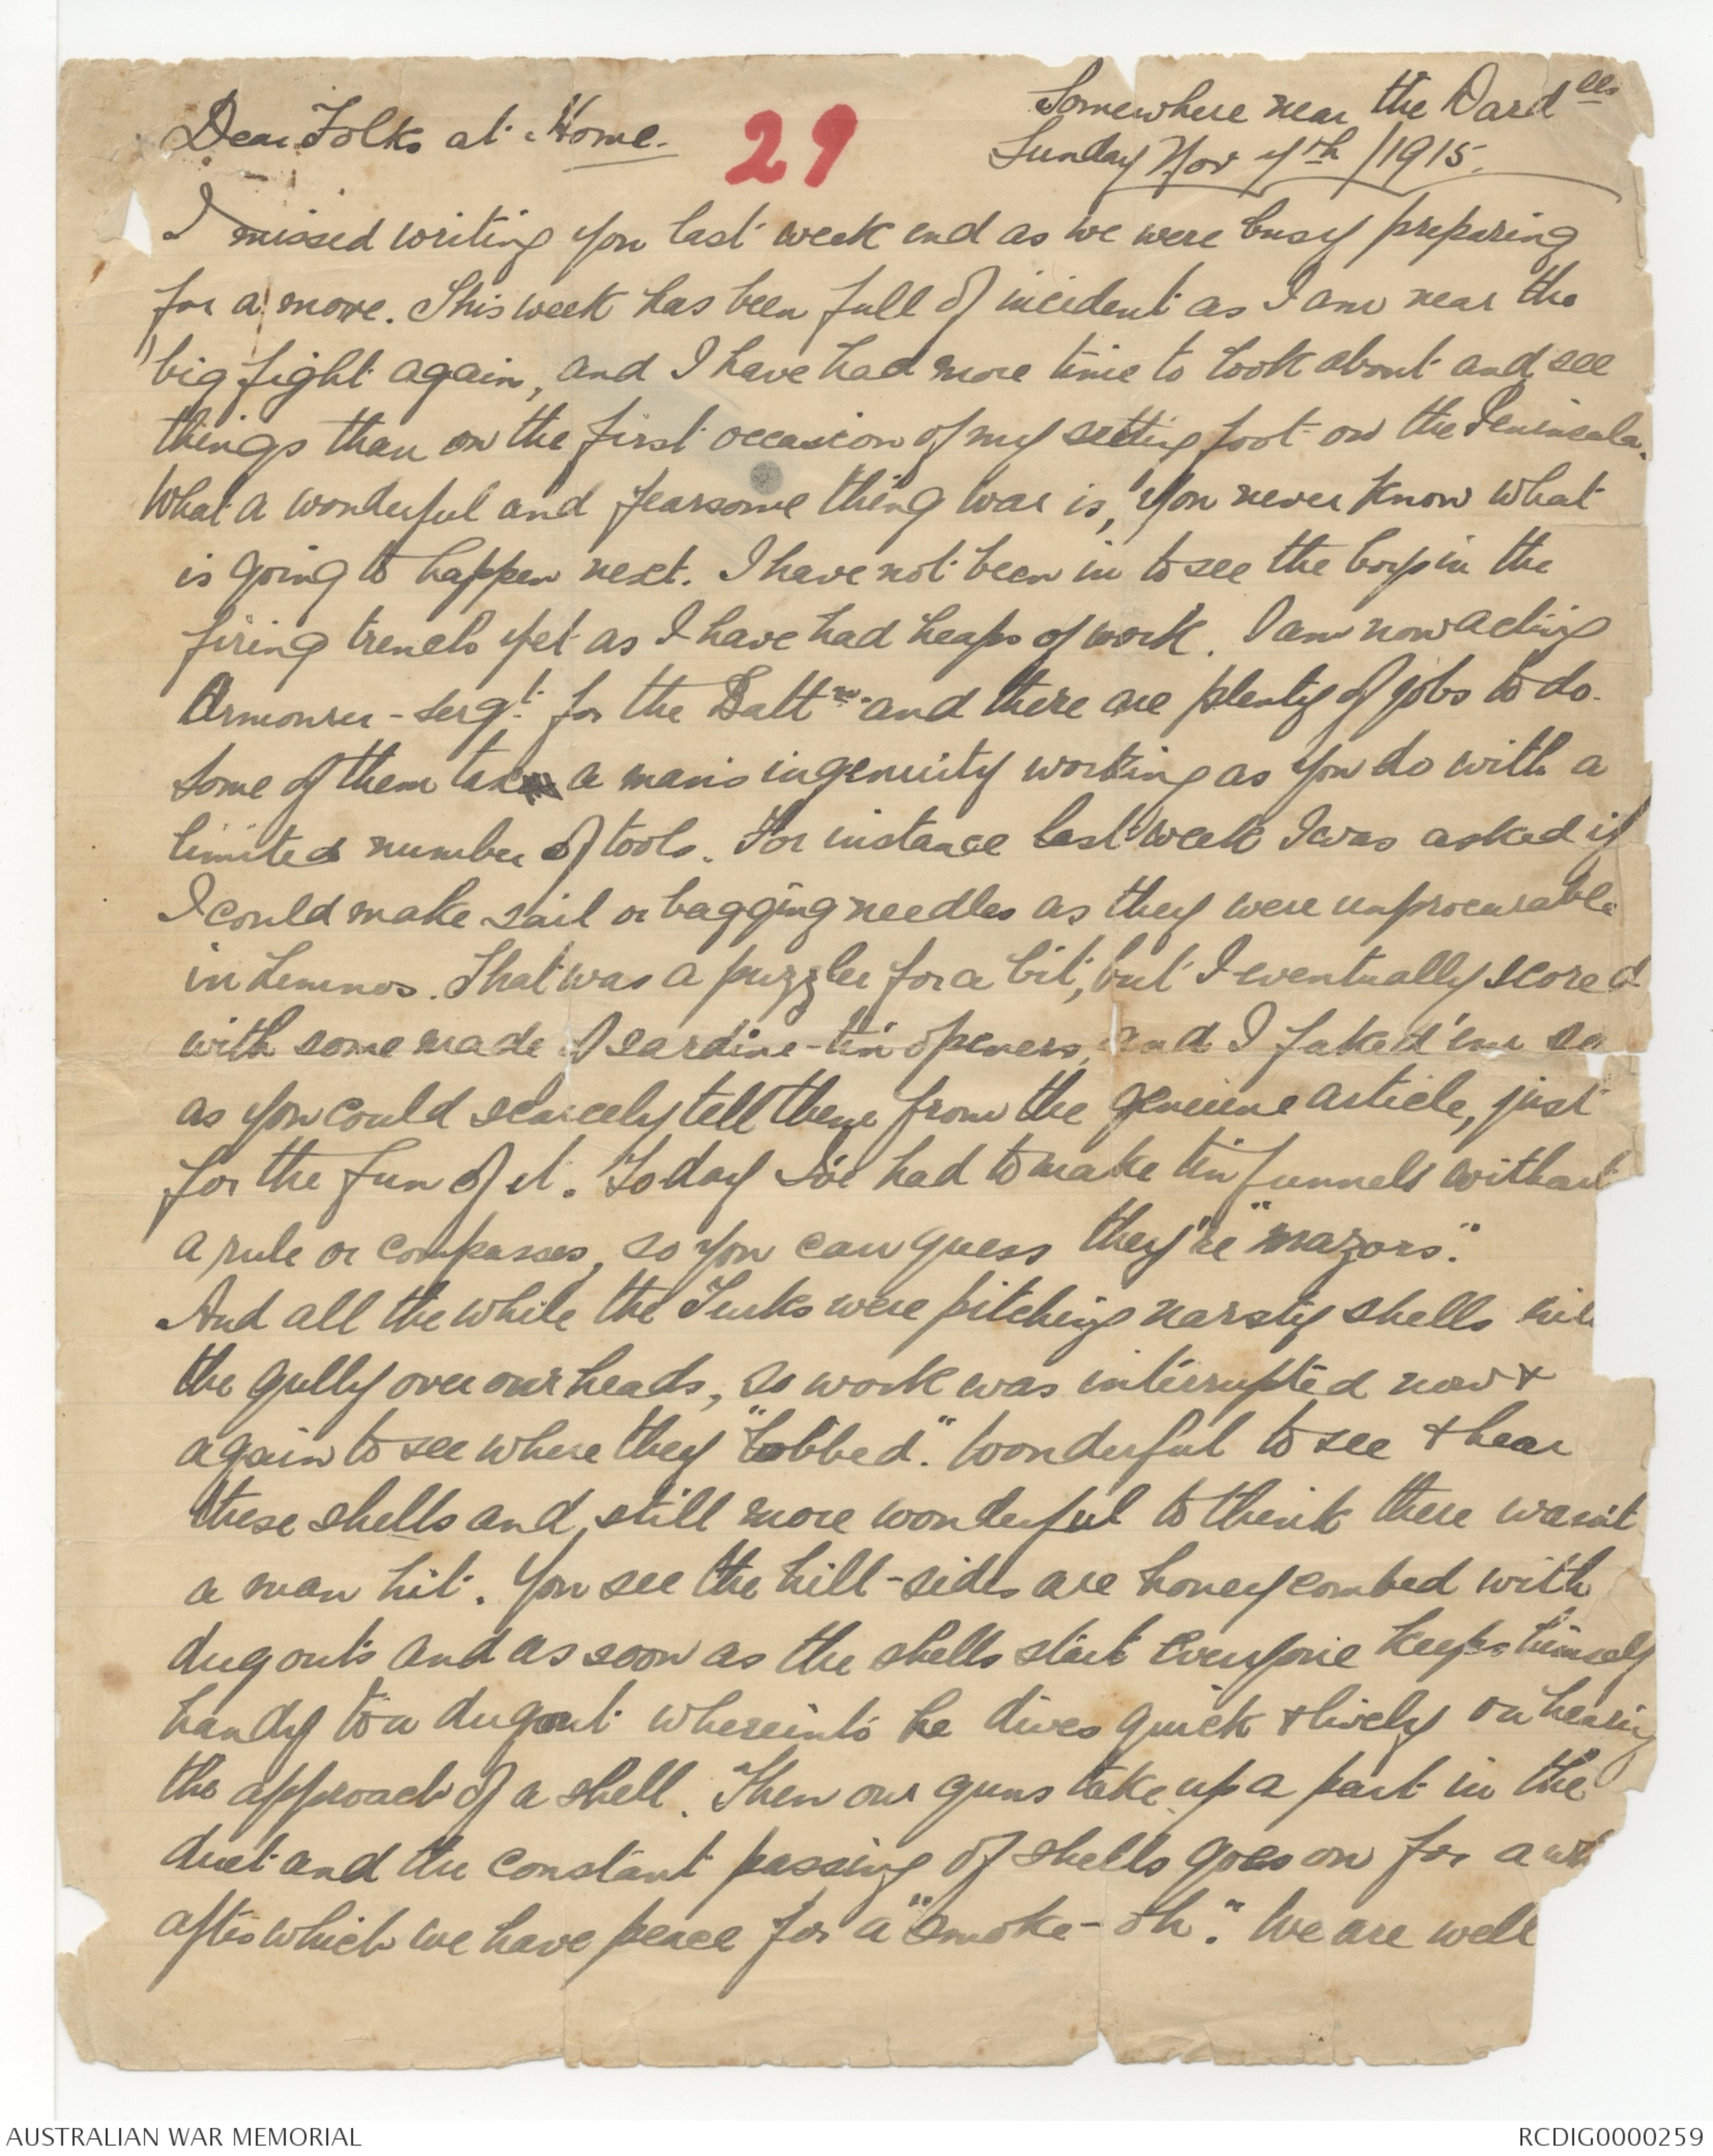 Somewhere near the Dard<sup>lls</sup>
Dear Folks at Home. 29 Sunday Nov 7th /1915.
I missed writing you last week end as we were busy preparing
for a move. This week has been full of incident as I am near the
big fight again, and I have had more time to look about and see
things than on the first occasion of my setting foot on the Peninsula.
What a wonderful and fearsome thing war is, you never know what
is going to happen next. I have not been in to see the boys in the
firing trench yet as I have had heaps of work. I am now acting
Armourer-Sergt. for the Battn. and there are plenty of jobs to do.
Some of them take a man's ingenuity working as you do with a
limited number of tools. For instance last week I was asked if
I could make sail or bagging needles as they were unprocurable
in Lemnos. That was a puzzler for a bit, but I eventually scored
with some made of sardine-tin openers, and I faked 'em so
as you could scarcely tell them from the genuine article, just
for the fun of it. Today I've had to make tin funnels without
a rule or compasses, so you can guess they're "mazors".
And all the while the Turks were pitching narsty shells
the gully over our heads, so work was interrupted now &
again to see where they "lobbed". Wonderful to see & hear
these shells and, still more wonderful to think there wasn't
a man hit. You see the hill-sides are honeycombed with
dugouts and as soon as the shells start everyone keeps himself
handy to a dugout whereinto he dives quick & lively on hearing
the approach of a shell. Then our guns take up a part in the
duet and the constant passing of shells goes on for a
after which we have peace for a "smoke-oh". We are well
AUSTRALIAN WAR MEMORIAL RCDIG0000259